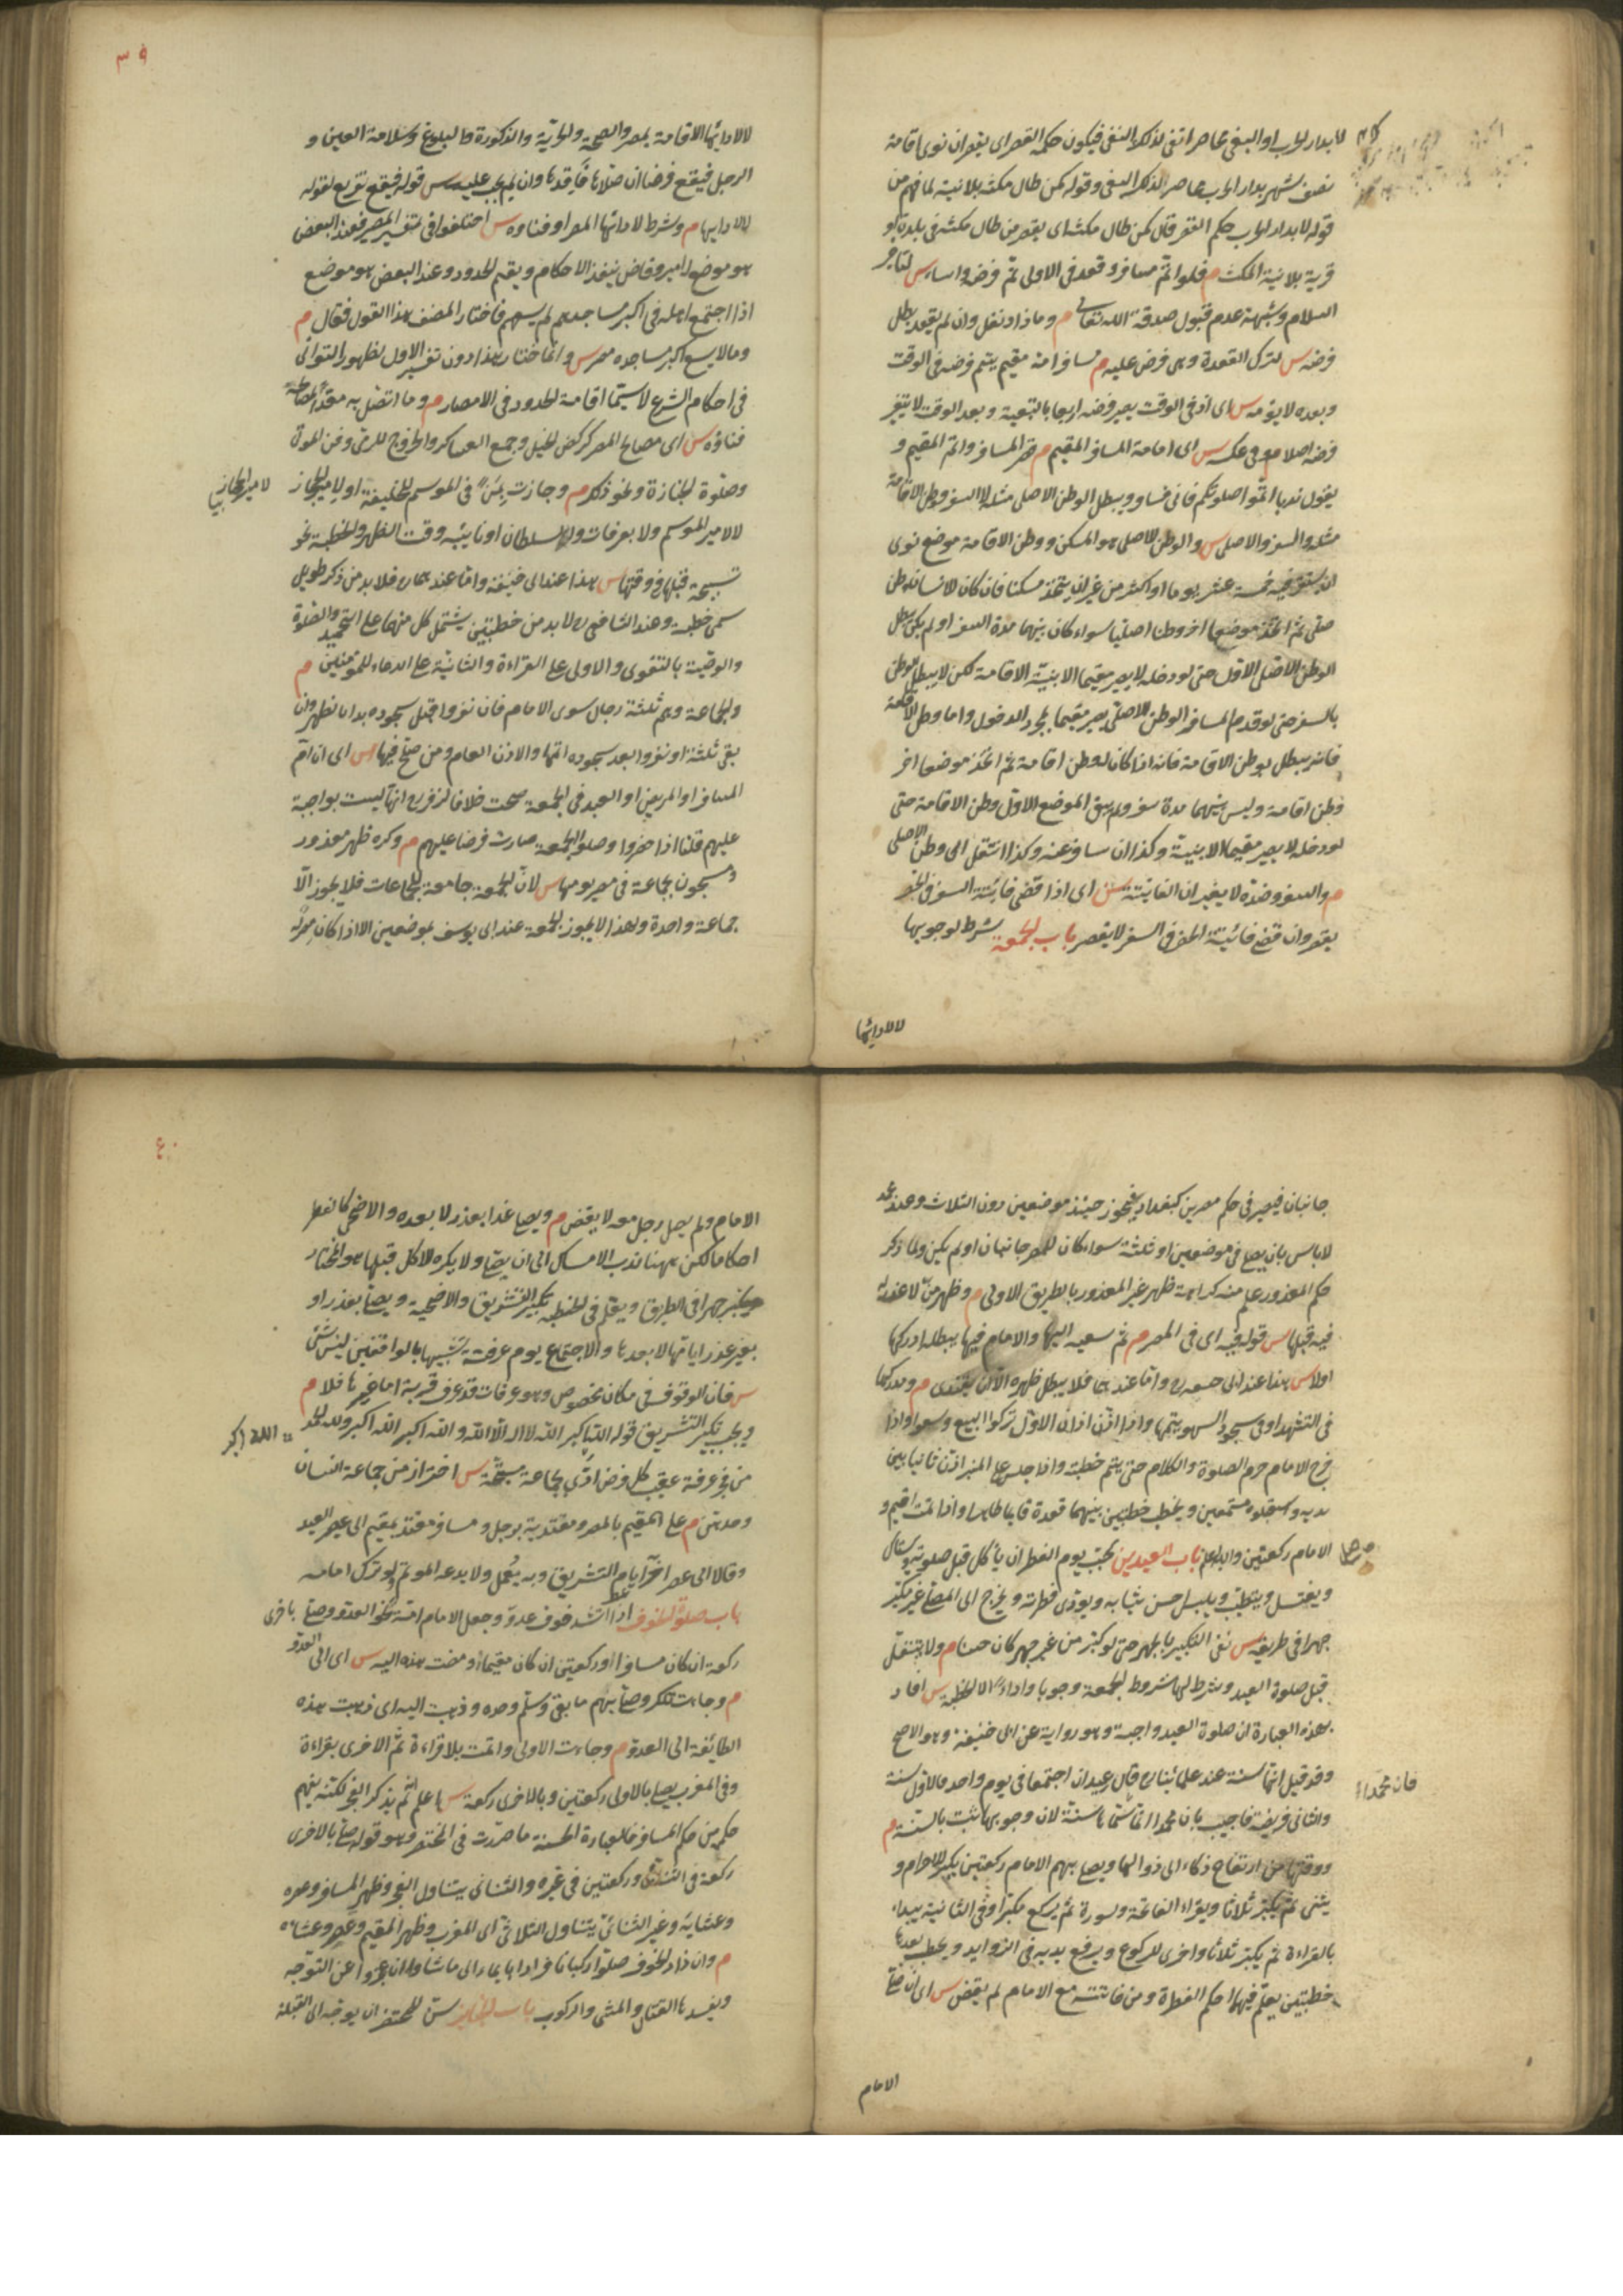 لا بدار الحرب او البغي محاصرا نفى لذلك النفي فيكون حكمه القصر اى يقصر ان نوى اقامة
نصف شهر بدار الحرب محاصرا لذلك البغي وقوله كمن طال مكثه بلا نية لما فهم من
قوله لا بدار الحرب حكم القصر قال كمن طال مكثه اى يقصر من طال مكثه فى بلدة او
قرية بلا نية المكث م فلو اتم مسافر وقعد فى الاولى تم فرضه واساء س لتاخير
السلام وشبهة عدم قبول صدقة الله تعالى م وما زاد نفل وان لم يقعد بطل
فرضه س لترك القعدة وهى فرض عليه م مسافر امه مقيم يتم فرضه فى الوقت
وبعده لا يؤمه س اى اذ فى الوقت يصير فرضه اربعا بالتبعية وبعد الوقت لا يتغير
فرضه اصلا م وفى عكسه س اى امامة المسافر المقيم م قصر المسافر واتم المقيم و
يقول ندبا اتموا صلوتكم فانى مسافر ويبطل الوطن الاصلى مثله لا السفر ووطن الاقامة
مثله والسفر والاصلى س والوطن الاصلى هو المسكن ووطن الاقامة موضع نوى
ان يستقر فيه خمسة عشر يوما او اكثر من غير ان يتخذ مسكنا فان كان لانسان وطن
اصلى ثم اتخذ موضعا اخر وطنا اصليا سواء كان بينهما مدة السفر او لم يكن يبطل
الوطن الاصلى الاول حتى لو دخله لا يصير مقيما الا بنية الاقامة لكن لا يبطل الوطن
بالسفر حتى لو قدم المسافر الوطن الاصلى يصير مقيما بمجرد الدخول واما وطن الاقامة
فانه يبطل بوطن الاقامة فانه اذا كان له وطن اقامة ثم اتخذ موضعا اخر
وطن اقامة وليس بينهما مدة سفر ولم يبق الموضع الاول وطن الاقامة حتى
لو دخله لا يصير مقيما الا بنية وكذا ان سافر عنه وكذا انتقل الى وطن الاصلى
م والسفر وضده لا يغيران الفائتة س اى اذا قضى فائتة السفر فى الحضر
يقصر وان قضى فائتة الحضر فى السفر لا يقصر باب الجمعة شرط لوجوبها
لا لادائها
٣٩
لا لادائها الاقامة بمصر والصحة والحرية والذكورة والبلوغ وسلامة العين و
الرجل فيقع فرضا ان صلاها فاقدها وان لم يجب عليه س قوله فيقع تفريع لقوله
لا لادائها م وشرط لادائها المصر او فناؤه س اختلفوا فى تفسير المصر فعند البعض
هو موضع له امير وقاض ينفذ الاحكام ويقيم الحدود وعند البعض هو موضع
اذا اجتمع اهله فى اكبر مساجدهم لم يسعهم فاختار المصنف هذا القول فقال م
وما لا يسع اكبر مساجده مصر س وانما اختار هذا دون تفسير الاول لظهور التوانى
فى احكام الشرع لا سيما اقامة الحدود فى الامصار م وما اتصل به معدا لمصالحه
فناؤه س اى مصالح المصر كركض الخيل وجمع العساكر والخروج للرمى ودفن الموتى
وصلوة الجنازة ونحو ذلك م وجازت بمنى فى الموسم للخليفة او لامير الحجاز
لا لامير الموسم ولا بعرفات والسلطان او نائبه ووقت الظهر والخطبة نحو
تسبيحة قبلها فى وقتها س هذا عند ابى حنيفة واما عندهما فلا بد من ذكر طويل
سمى خطبة وعند الشافعى لا بد من خطبتين يشتمل كل منهما على التحميد والصلوة
والوصية بالتقوى والاولى على القراءة والثانية على الدعاء للمؤمنين م
والجماعة وهم ثلثة رجال سوى الامام فان نفروا قبل سجوده بدأ بالظهر وان
بقى ثلثة او نفروا بعد سجوده اتمها والاذن العام ومن صلح فيها س اى ان ام
المسافر او المريض او العبد فى الجمعة صحت خلافا لزفر انها ليست بواجبة
عليهم قلنا اذا حضروا وصلوا الجمعة صارت فرضا عليهم م وكره ظهر معذور
ومسجون بجماعة فى مصر يومها س لان الجمعة جامعة للجماعات فلا يجوز الا
جماعة واحدة ولهذا لا يجوز الجمعة عند ابى يوسف بموضعين الا اذا كان مصر له
جانبان فيصير فى حكم مصرين كبغداد فيجوز حينئذ موضعين دون الثلاث وعند محمد
لا باس بان يصلى فى موضعين او ثلثة سواء كان للمصر جانبان او لم يكن ولما ذكر
حكم المعذور علم منه كراهة ظهر غير المعذور بالطريق الاولى م وظهر من لا عذر له
فيه قبلها س قوله فيه اى فى المصر م ثم سعيه اليها والامام فيها يبطله ادركها
اولا س هذا عند ابى حنيفة واما عندهما فلا يبطل ظهره الا ان يقتدى م ومدركها
فى التشهد او فى سجود السهو يتمها واذا اذن اذان الاول تركوا البيع وسعوا واذا
خرج الامام حرم الصلوة والكلام حتى يتم خطبته واذا جلس على المنبر اذن ثانيا بين
يديه واستقبلوه مستمعين ويخطب خطبتين بينهما قعدة قائما طاهرا واذا تمت اقيم و
الامام ركعتين والله اعلم باب العيدين يجب يوم الفطر ان يأكل قبل صلوته ويستاك
ويغتسل ويتطيب ويلبس احسن ثيابه ويؤدى فطرته ويخرج الى المصلى غير مكبر
جهرا فى طريقه س نفى التكبير بالجهر حتى لو كبر من غير جهر كان حسنا م ولا يتنفل
قبل صلوة العيد وشرط لها شروط الجمعة وجوبا واداء الا الخطبة س افاد
بهذه العبارة ان صلوة العيد واجبة وهو رواية عن ابى حنيفة وهو الاصح
وقد قيل انها سنة عند علمائنا قال عيدان اجتمعا فى يوم واحد فالاول سنة
والثانى فريضة فاجيب بان محمدا انما سماها سنة لان وجوبها ثبت بالسنة م
فان محمدا
ووقتها من ارتفاع ذكاء الى زوالها ويصلى بهم الامام ركعتين يكبر للاحرام و
يثنى ثم يكبر ثلاثا ويقراء الفاتحة وسورة ثم يركع مكبرا وفى الثانية يبداء
بالقراءة ثم يكبر ثلاثا واخرى للركوع ويرفع يديه فى الزوايد ويخطب بعدها
خطبتين يعلم فيهما احكم الفطرة ومن فاتته مع الامام لم يقض س اى ان صلى
الامام
٤٠
الامام ولم يصل رجل معه لا يقض م ويصلى غدا بعذر لا بعده والاضحى كالفطر
احكاما لكن ههنا ندب الامساك الى ان يصلى ولا يكره الاكل قبلها هو المختار
ويكبر جهرا فى الطريق ويعلم فى الخطبة تكبير التشريق والاضحية ويصلى بعذر او
بغير عذر ايامها لا بعدها والاجتماع يوم عرفة تشبيها بالواقفين ليس بشئ
س فان الوقوف فى مكان مخصوص وهو عرفات قد عرف قربة اما غيرها فلا م
ويجب تكبير التشريق قوله الله اكبر الله لا اله الا الله والله اكبر الله اكبر ولله الحمد
الله اكبر
من فجر عرفة عقيب كل فرض ادى بجماعة مستحبة س احتراز من جماعة النسان
وحدهن م على المقيم بالمصر ومقتدية برجل ومسافر مقتد بمقيم الى عصر العيد
وقالا الى عصر اخر ايام التشريق وبه يعمل ولا يدعه المؤتم ولو ترك امامه
باب صلوة الخوف اذا اشتد خوف عدو وجعل الامام امة نحو العدو وصلى باخرى
ركعة ان كان مسافرا او ركعتين ان كان مقيما ومضت هذه اليه س اى الى العدو
م وجاءت تلك وصلى بهم ما بقى وسلم وحده وذهبت اليه اى ذهبت هذه
الطائفة الى العدو م وجاءت الاولى واتمت بلا قراءة ثم الاخرى بقراءة
وفى المغرب يصلى بالاولى ركعتين وبالاخرى ركعة س اعلم انه لم يذكر الفجر لكنه يفهم
حكمه من حكم المسافر فالعبارة الحسنة ما حررت فى المختصر وهو قوله صلى بالاخرى
ركعة فى الثنائى وركعتين فى غيره والثنائى يتناول الفجر وظهر المسافر وعصره
وعشائه وغير الثنائى يتناول الثلاثى اى المغرب وظهر المقيم وعصره وعشائه
م وان زاد الخوف صلوا ركبانا فرادا بايماء الى ما شاؤا ان عجزوا عن التوجه
ويفسدها القتال والمشى والركوب باب الجنائز سن للمحتضر ان يوجه الى القبلة